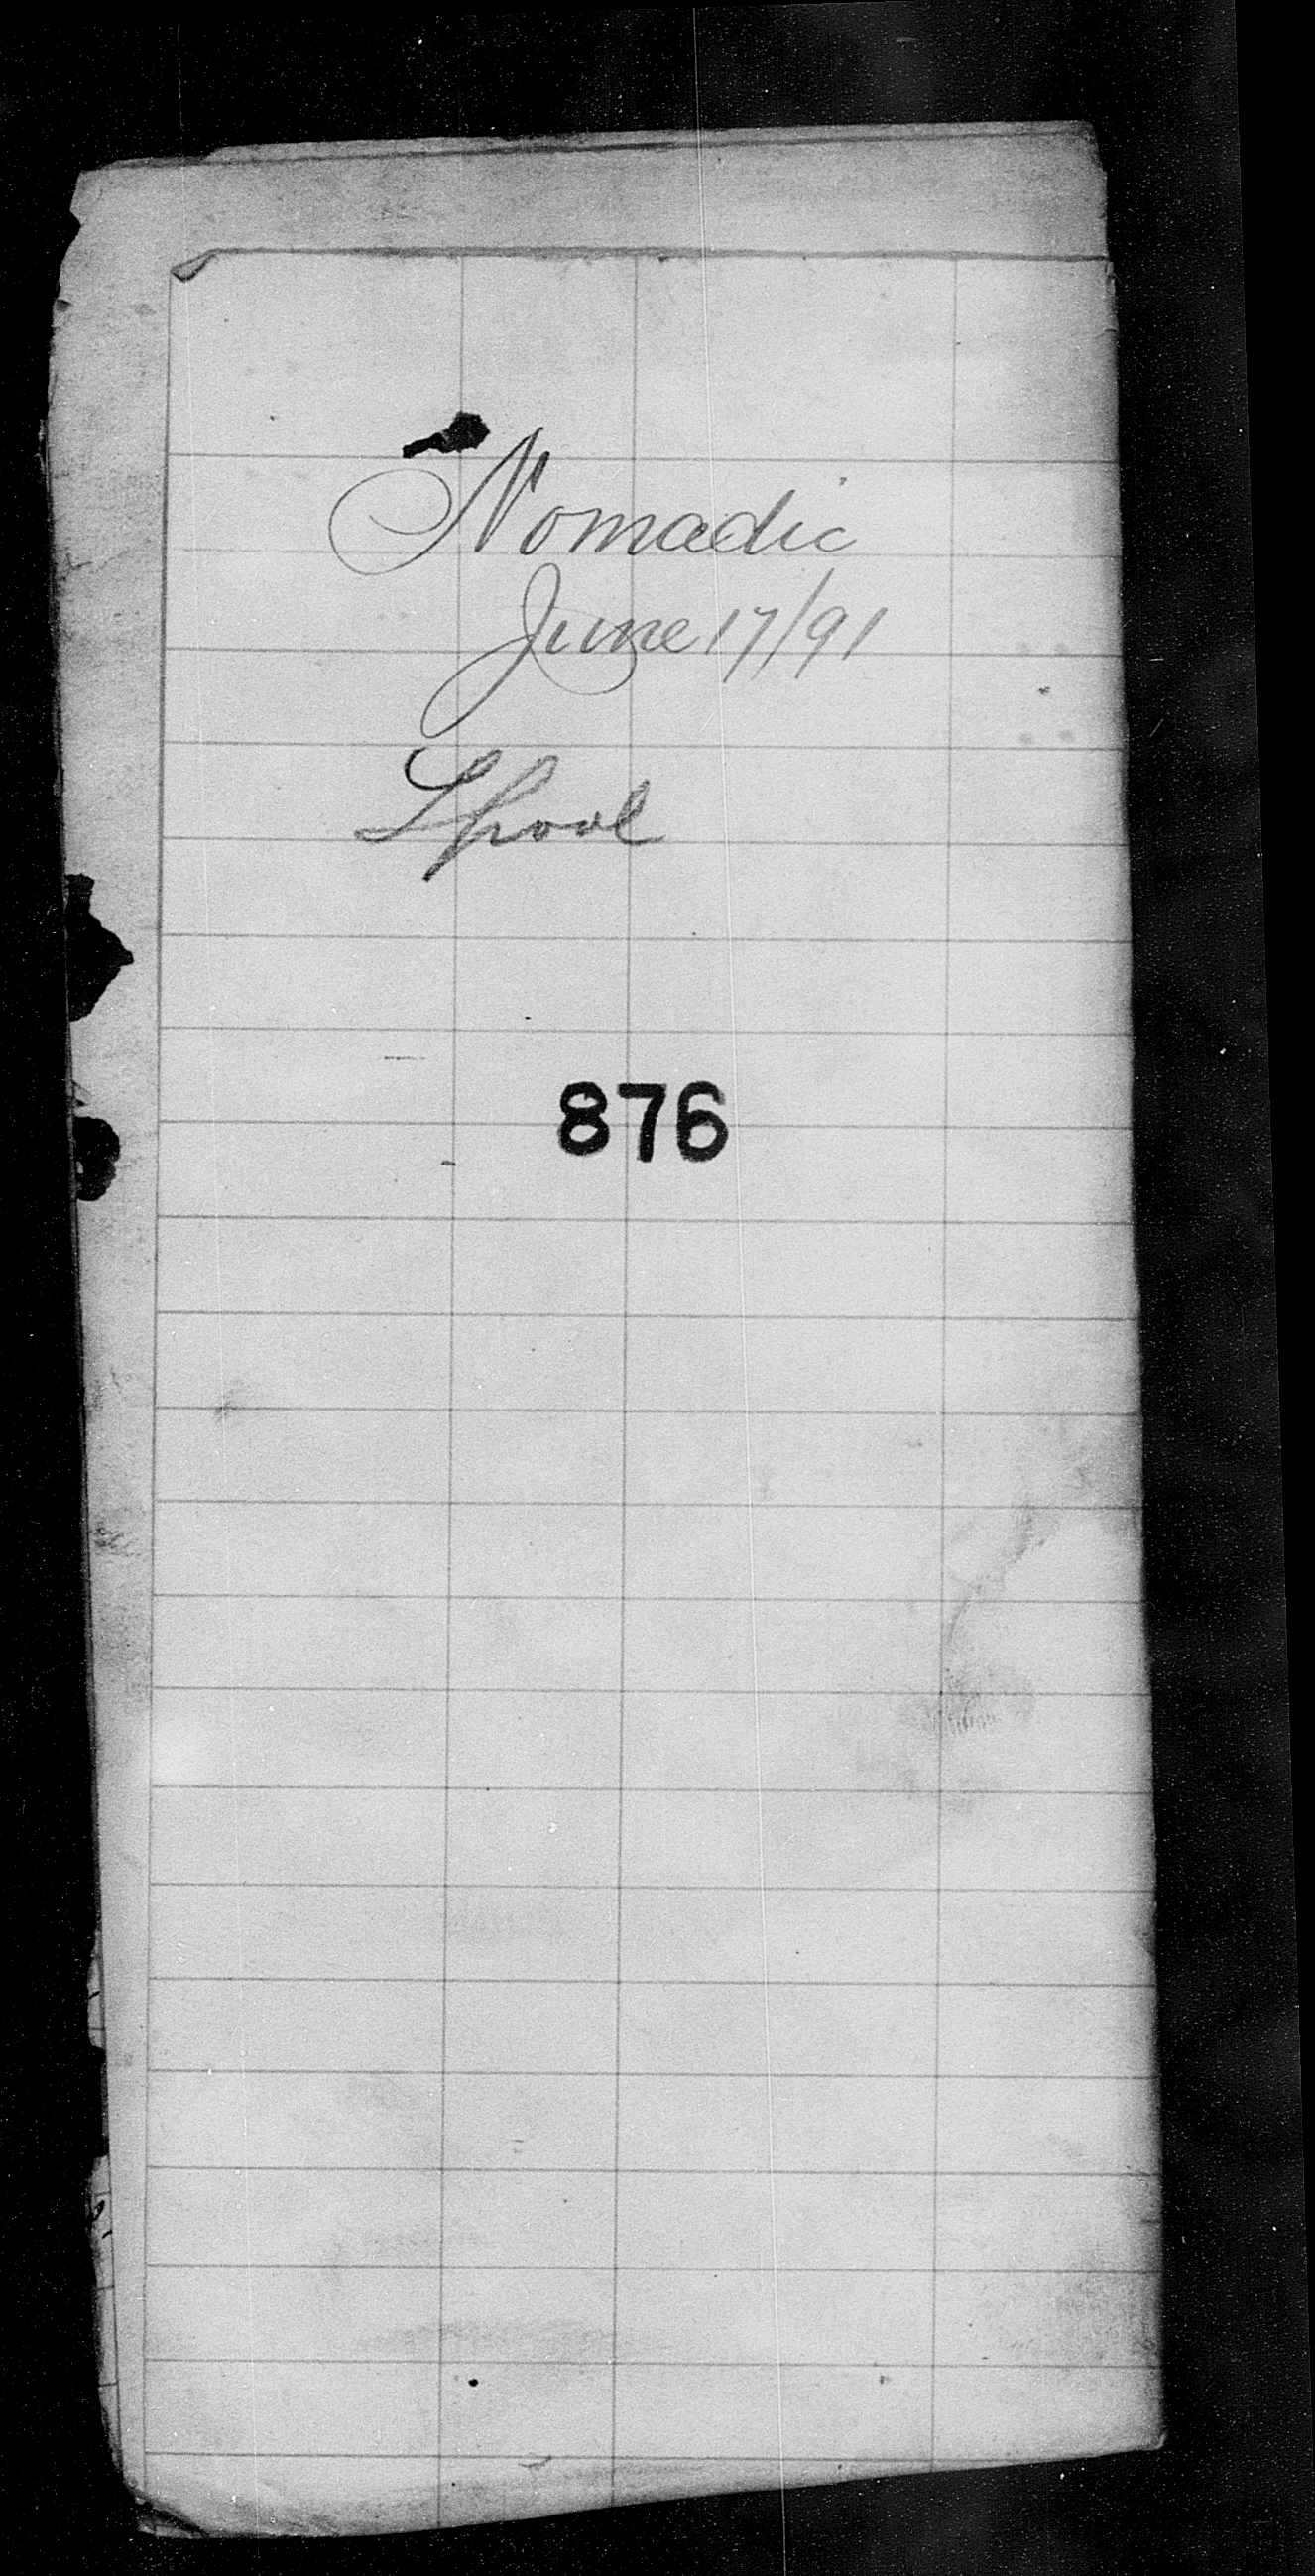 Nomadic
June 17/91
Lpool
876